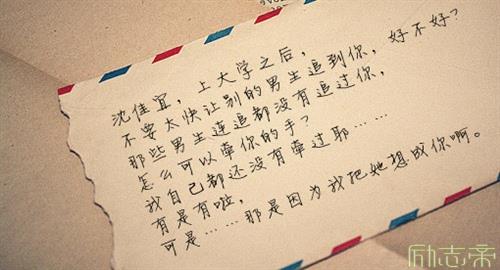 沈佳宜，上大学之后，
不要太快让别的男生追到你，好不好？
那些男生连追都没有追过你，
怎么可以牵你的手？
我自己都还没有牵过耶……
有是有啦，
可是……那是因为我把她想成你啊。
励志帝